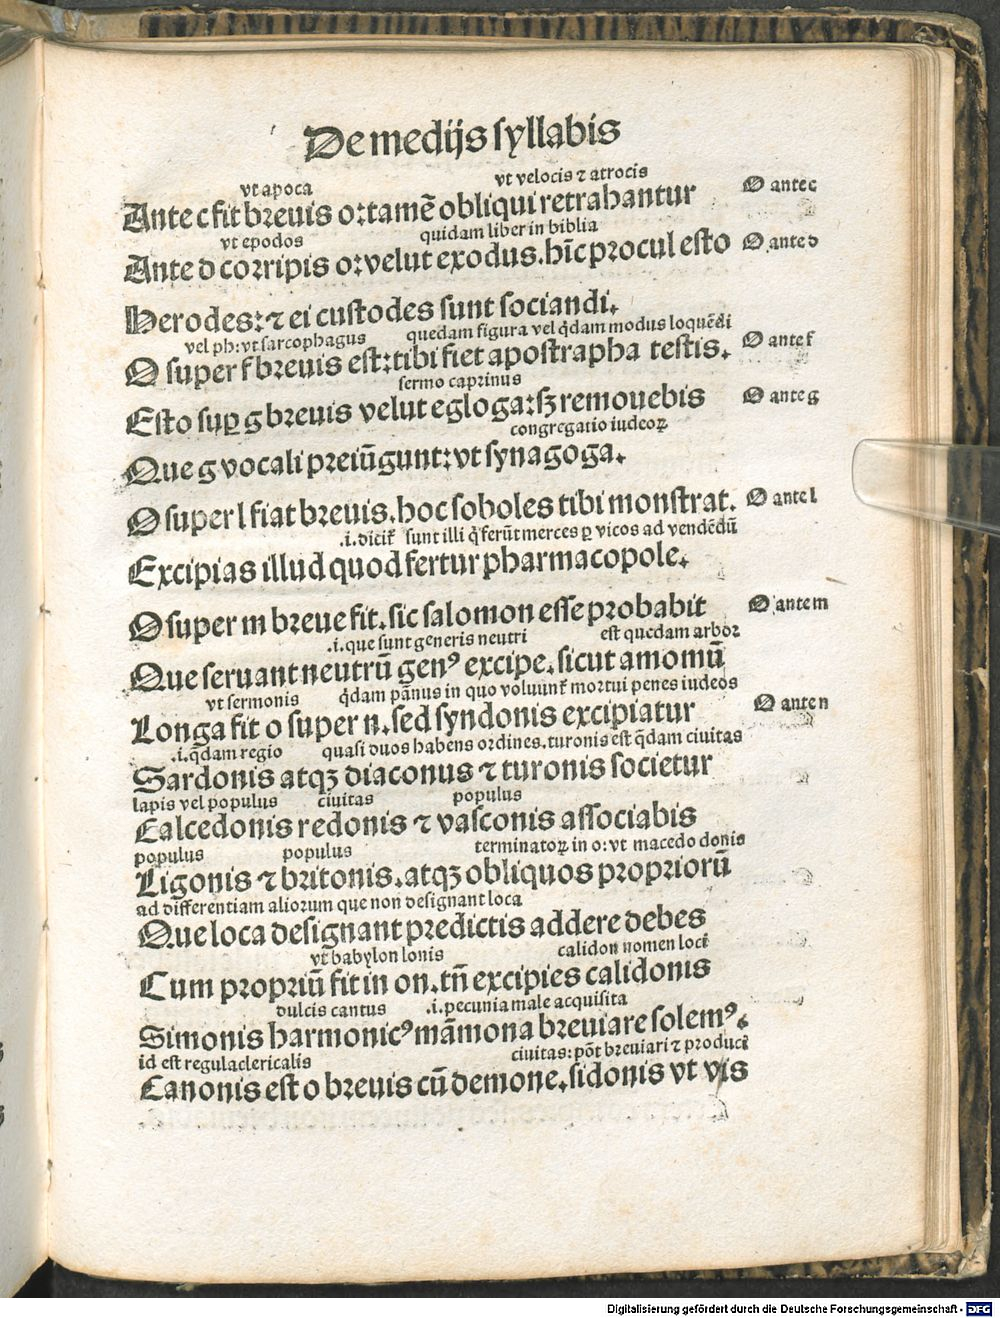 De medijs syllabis
vt apoca vt velocis ⁊ atrocis
Ante c fit breuis o: tamē obliqui retrahantur O ante c
vt epodos quidam liber in biblia
Ante d corripis o: velut exodus. hīc procul esto O ante d
Herodes: ⁊ ei custodes sunt sociandi.
vel ph: vt sarcophagus quedam figura vel q̄dam modus loquēdi
O super f breuis est: tibi fiet apostrapha testis. O ante f
sermo caprinus
Esto suꝑ g breuis velut egloga: sꝫ remouebis O ante g
congregatio iudeoꝝ
Que g vocali preiūgunt: vt synagoga.
O super l fiat breuis. hoc soboles tibi monstrat. O ante l
.i. dicit̄ sunt illi q̄ ferūt merces ꝑ vicos ad vendēdū
Excipias illud quod fertur pharmacopole.
O super m breue fit. sic salomon esse probabit O ante m
.i. que sunt generis neutri est quedam arbor
Que seruant neutrū genꝰ excipe. sicut amomū
vt sermonis q̄dam pānus in quo voluunt̄ mortui penes iudeos
Longa fit o super n. sed syndonis excipiatur O ante n
.i. q̄dam regio quasi duos habens ordines. turonis est q̄dam ciuitas
Sardonis atqꝫ diaconus ⁊ turonis societur
lapis vel populus ciuitas populus
Calcedonis redonis ⁊ vasconis associabis
populus populus terminatoꝝ in o: vt macedo donis
Ligonis ⁊ britonis. atqꝫ obliquos propriorū
ad differentiam aliorum que non designant loca
Que loca designant predictis addere debes
vt babylon lonis calidon nomen loci
Cum propriū fit in on. tn̄ excipies calidonis
dulcis cantus .i. pecunia male acquisita
Simonis harmonicꝰ māmona breuiare solemꝰ.
id est regula clericalis ciuitas: pōt breuiari ⁊ produci
Canonis est o breuis cū demone. sidonis vt vis
Digitalisierung gefördert durch die Deutsche Forschungsgemeinschaft - DFG